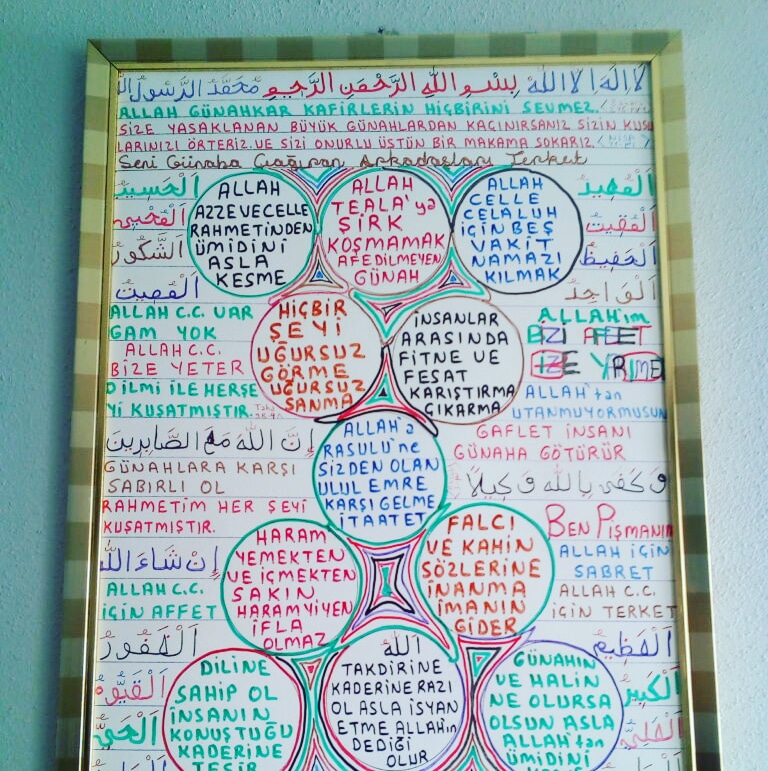 لا اله الا الله بسم الله الرحمن الرحيم محمد الرسول الل
ALLAH GÜNAHKAR KAFİRLERİN HİÇBİRİNİ SEVMEZ.
SİZE YASAKLANAN BÜYÜK GÜNAHLARDAN KAÇINIRSANIZ SİZİN KUSU
LARINIZI ÖRTERİZ.VE SİZİ ONURLU ÜSTÜN BİR MAKAMA SOKARIZ.
Seni Günaha Çağıran Arkadaşları Terket
اَلْحَسِيبُ
اَلْمُحْيِي
اَلشَّكُورُ
اَلْمُمِيتُ
ALLAH
AZZEVECELLE
RAHMETİNDEN
ÜMİDİNİ
ASLA
KESME
ALLAH
TEALA'ya
ŞİRK
KOŞMAMAK
AFEDİLMEYEN
GÜNAH
ALLAH
CELLE
CELALUH
İÇİN BEŞ
VAKİT
NAMAZI
KILMAK
اَلْمُقِيتُ
اَلْحَفِيظُ
اَلْوَاجِدُ
ALLAH C.C. VAR
GAM YOK
ALLAH C.C.
BİZE YETER
O İLMİ İLE HERŞE
Yİ KUŞATMIŞTIR.
HİÇBİR
ŞEYİ
UĞURSUZ
GÖRME
UĞURSUZ
SANMA
İNSANLAR
ARASINDA
FİTNE VE
FESAT
KARIŞTIRMA
ÇIKARMA
ALLAH'ım
BİZİ AFFET
BİZE YARDIM ET
ALLAH'tan
UTANMUYORMUSUN
إِنَّ اللهَ مَعَ الصَّابِرِينَ
GÜNAHLARA KARŞI
SABIRLI OL
RAHMETİM HER ŞEYİ
KUŞATMIŞTIR.
ALLAH'a
RASULU'ne
SİZDEN OLAN
ULUL EMRE
KARŞI GELME
İTAATET
GAFLET İNSANI
GÜNAHA GÖTÜRÜR
وَكَفَى بِاللهِ وَكِيلاً
BEN PİŞMANIM
إِنْ شَاءَ الله
ALLAH C.C.
İÇİN AFFET
HARAM
YEMEKTEN
VE İÇMEKTEN
SAKIN
HARAM YİYEN
İFLA
OLMAZ
FALCI
VE KAHİN
SÖZLERİNE
İNANMA
İMANIN
GİDER
ALLAH İÇİN
SABRET
ALLAH C.C.
İÇİN TERKET
اَلْغَفُورُ
اَلْقَيُّومُ
اَلْحَيُّ
DİLİNE
SAHİP OL
İNSANIN
KONUŞTUĞU
KADERİNE
TESİR
الله
TAKDİRİNE
KADERİNE RAZI
OL ASLA İSYAN
ETME ALLAH'ın
DEDİĞİ
OLUR
GÜNAHIN
VE HALİN
NE OLURSA
OLSUN ASLA
ALLAH'tan
ÜMİDİNİ
اَلْعَظِيمُ
اَلْكَبِيرُ
اَلْعَلِيُّ